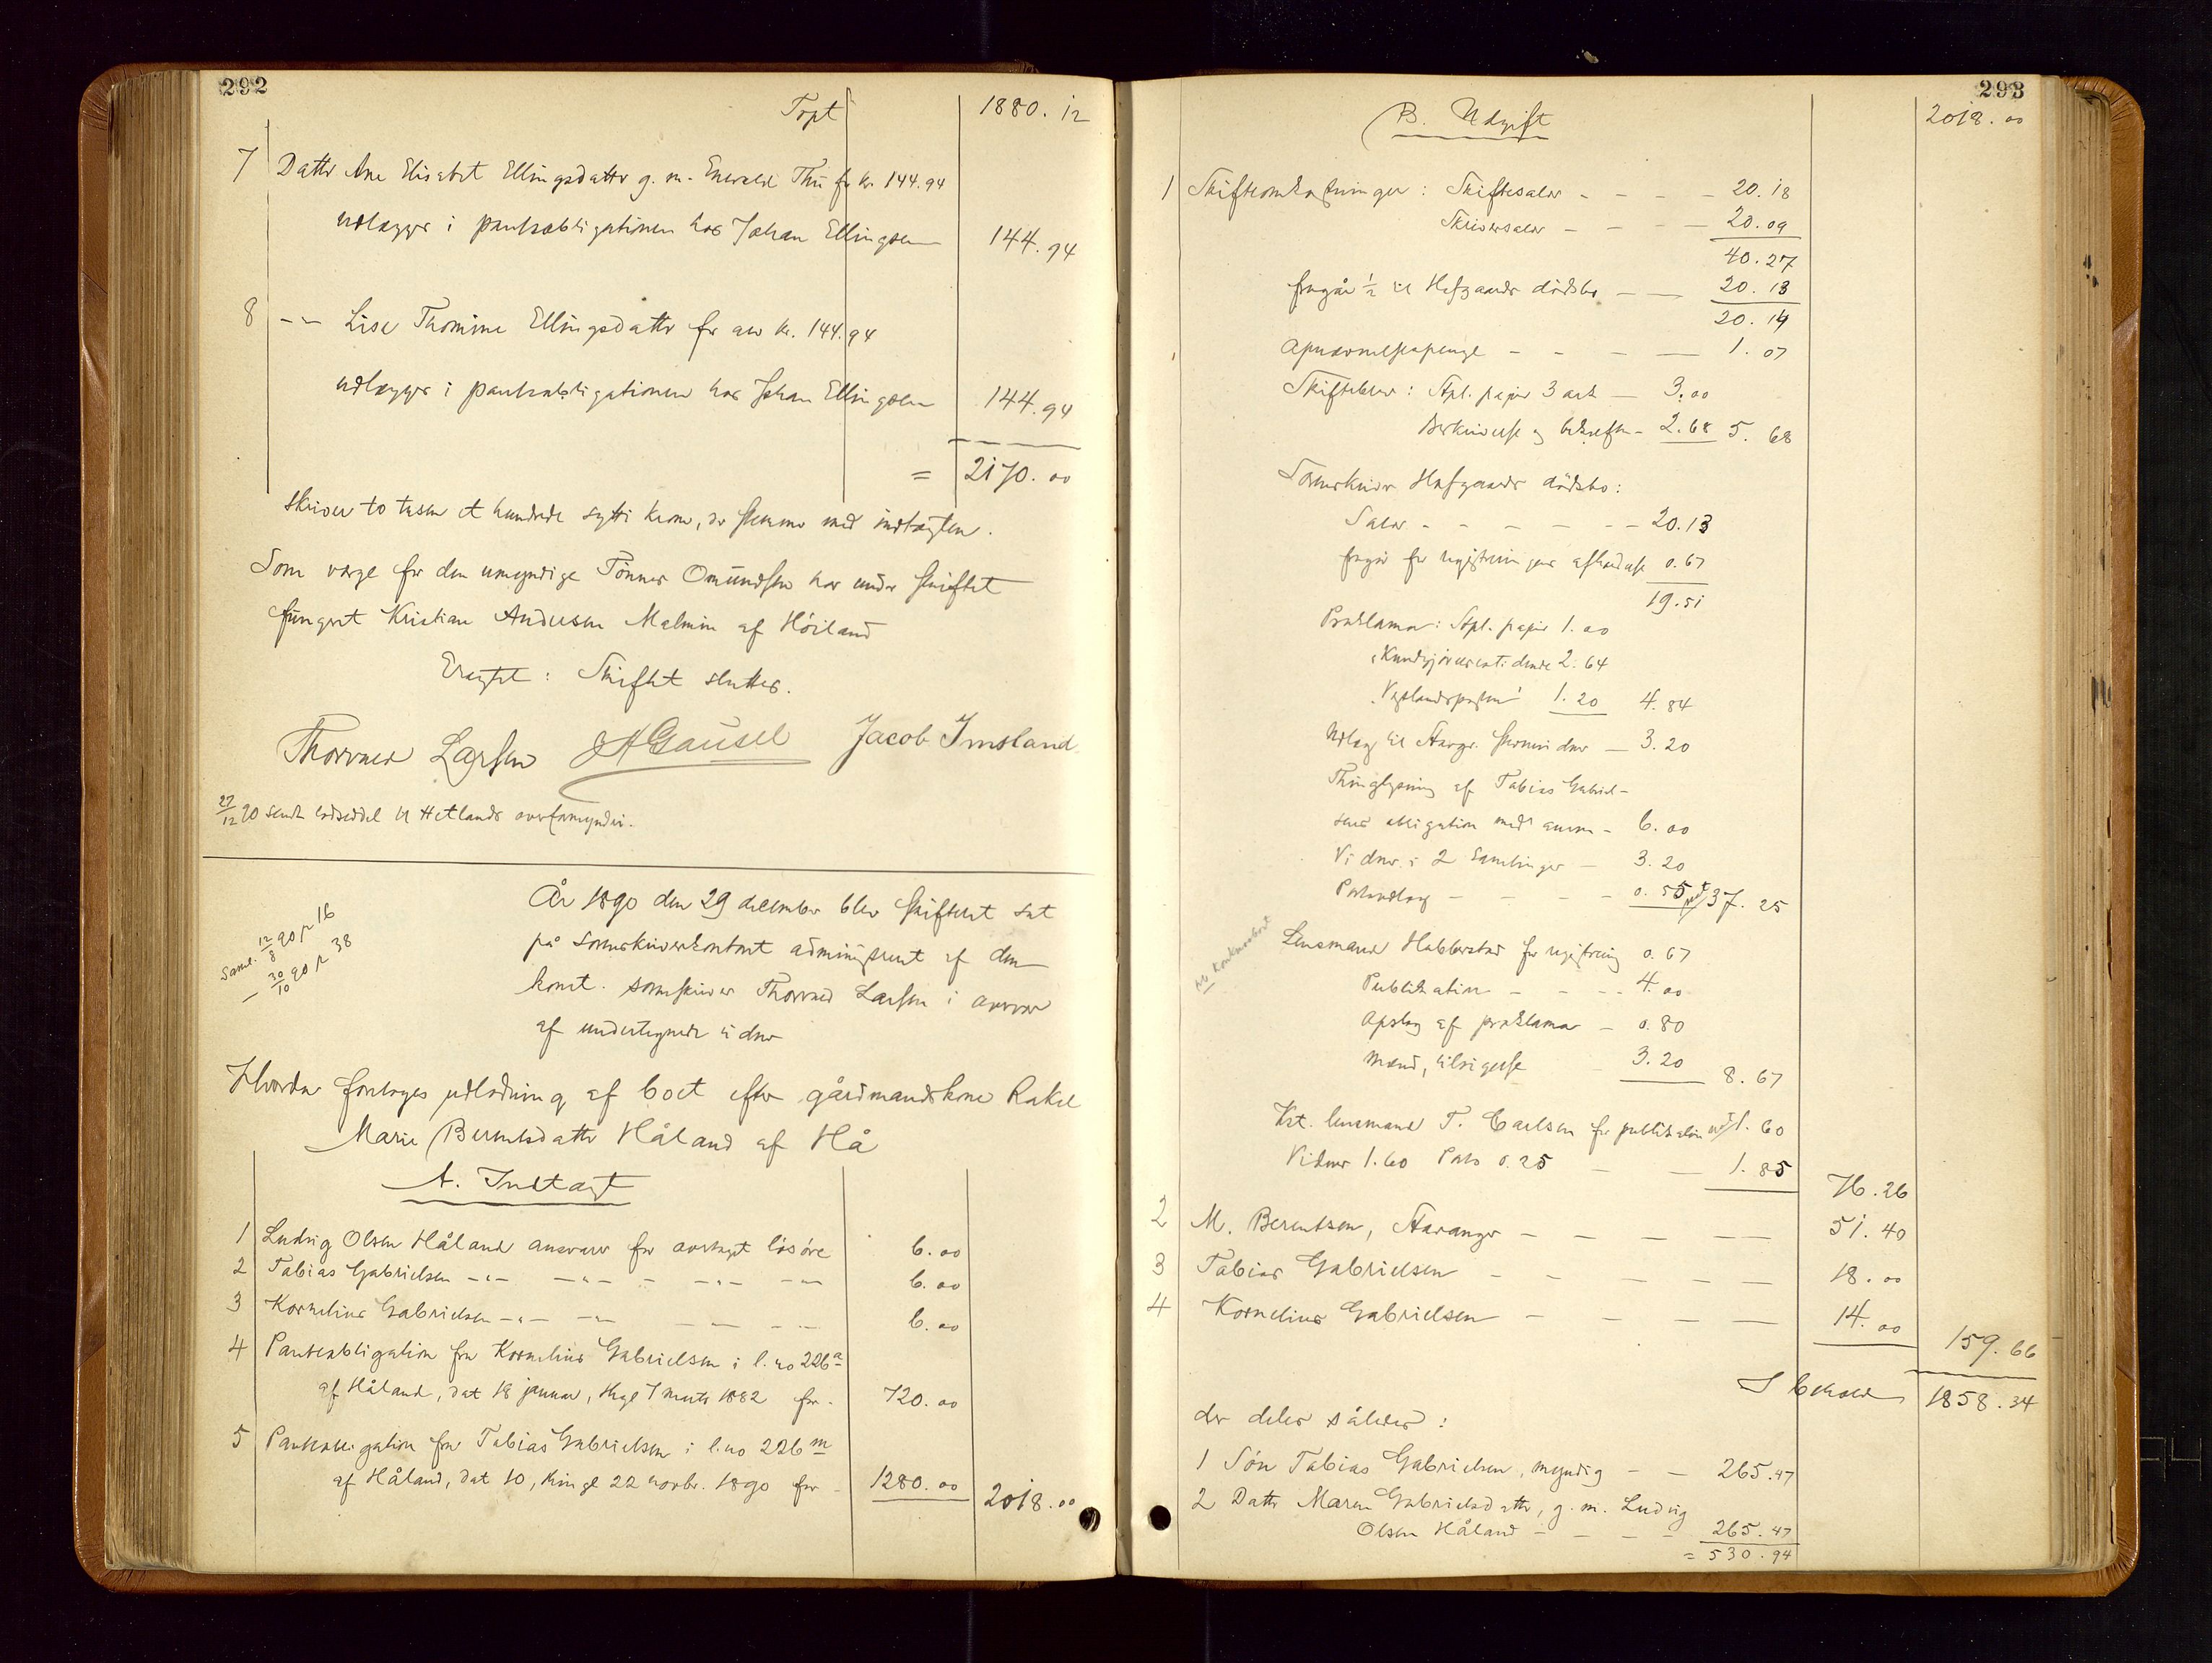 292
Trpt 1880.12
7 Datter Ane Elisabet Ellingsdatter g. m. Enevald Thu for kr. 144.94
udlægges i panteobligationen hos Johan Ellingsen 144.94
8 -"- Lise Thomine Ellingsdatter for arv kr. 144.94
udlægges i panteobligationen hos Johan Ellingsen 144.94
= 2170.00
skriver to tusen et hundrede sytti krone, der stemmer med indtægten.
Som verge for den umyndige Tønnes Omundsen har under skiftet
fungert Kristian Andersen Malmin af Høiland
Eragtet: Skiftet sluttes.
Thorvald Larsen JAGausel Jacob Imsland
27/12 90 sendt lodseddel til Hetlands overformynderi.
År 1890 den 29 december blev skifteret sat
på sorenskriverkontoret administreret af den
konst. sorenskriver Thorvald Larsen i overvær
af undertegnede vidner
Saml. 12/8 90 p 16
— 30/10 90 p 38
Hvorda foretoges udlodning af boet efter gårdmandskone Rakel
Marie Berntsdatter Håland af Hå
A. Indtægt
1 Ludvig Olsen Håland ansvarer for overtaget løsøre 6.00
2 Tobias Gabrielsen -"- -"- - -"- -"- 6.00
3 Kornelius Gabrielsen -"- -"- -"- -"- 6.00
4 Panteobligation fra Kornelius Gabrielsen i l. no 226a
af Håland, dat 18 januar, thgl 7 marts 1882 for - 720.00
5 Panteobligation fra Tobias Gabrielsen i l. no 226m
af Håland, dat 10, thingl 22 novbr. 1890 for - 1280.00 2018.00
293
B. Udgift 2018.00
1 Skifteomkostninger: Skiftesalær - - - - 20.18
Skriversalær - - - - 20.09
40.27
fragår 1/2 til Hafgaards dødsbo - — 20.13
20.14
Opnævnelsespenge - - - — 1.07
Skiftebrev: Stpl. papir 3 ark — 3.00
Beskrivelse og bekræft. - 2.68 5.68
Sorenskriver Hafgaards dødsbo:
Salær - - - - - - 20.13
fragår for registreringens afholdelse 0.67
19.51
Proklama: Stpl. papir 1.00
"Kundgjørelsestidende 2.64
"Vestlandsposten" 1.20 4.84
Udlæg til Stavgr. skrivervidner — 3.20
Thinglysning af Tobias Gabriel-
sens obligation med anm - 6.00
Vidner i 2 Samlinger — 3.20
Portoudlæg - - - - 0.55 37.25
Lensmand Habberstad for registrering 0.67
Publikation - - - - 4.00
Opslag af proklama - 0.80
Mænd, tilsigelse 3.20 8.67
Kst. lensmand T. Carlsen for publikation 1.60
Vidner 1.60 Porto 0.25 - — 1.85
76.26
2 M. Berentsen, Stavanger - - - — — 51.40
3 Tobias Gabrielsen - - - - - — 18.00
4 Kornelius Gabrielsen - - - - — 14.00 159.66
I behold 1858.34
der deles således:
1 Søn Tobias Gabrielsen, myndig - — 265.47
2 Datter Maren Gabrielsdatter, g. m. Ludvig
Olsen Håland - - - - 265.47
= 530.94